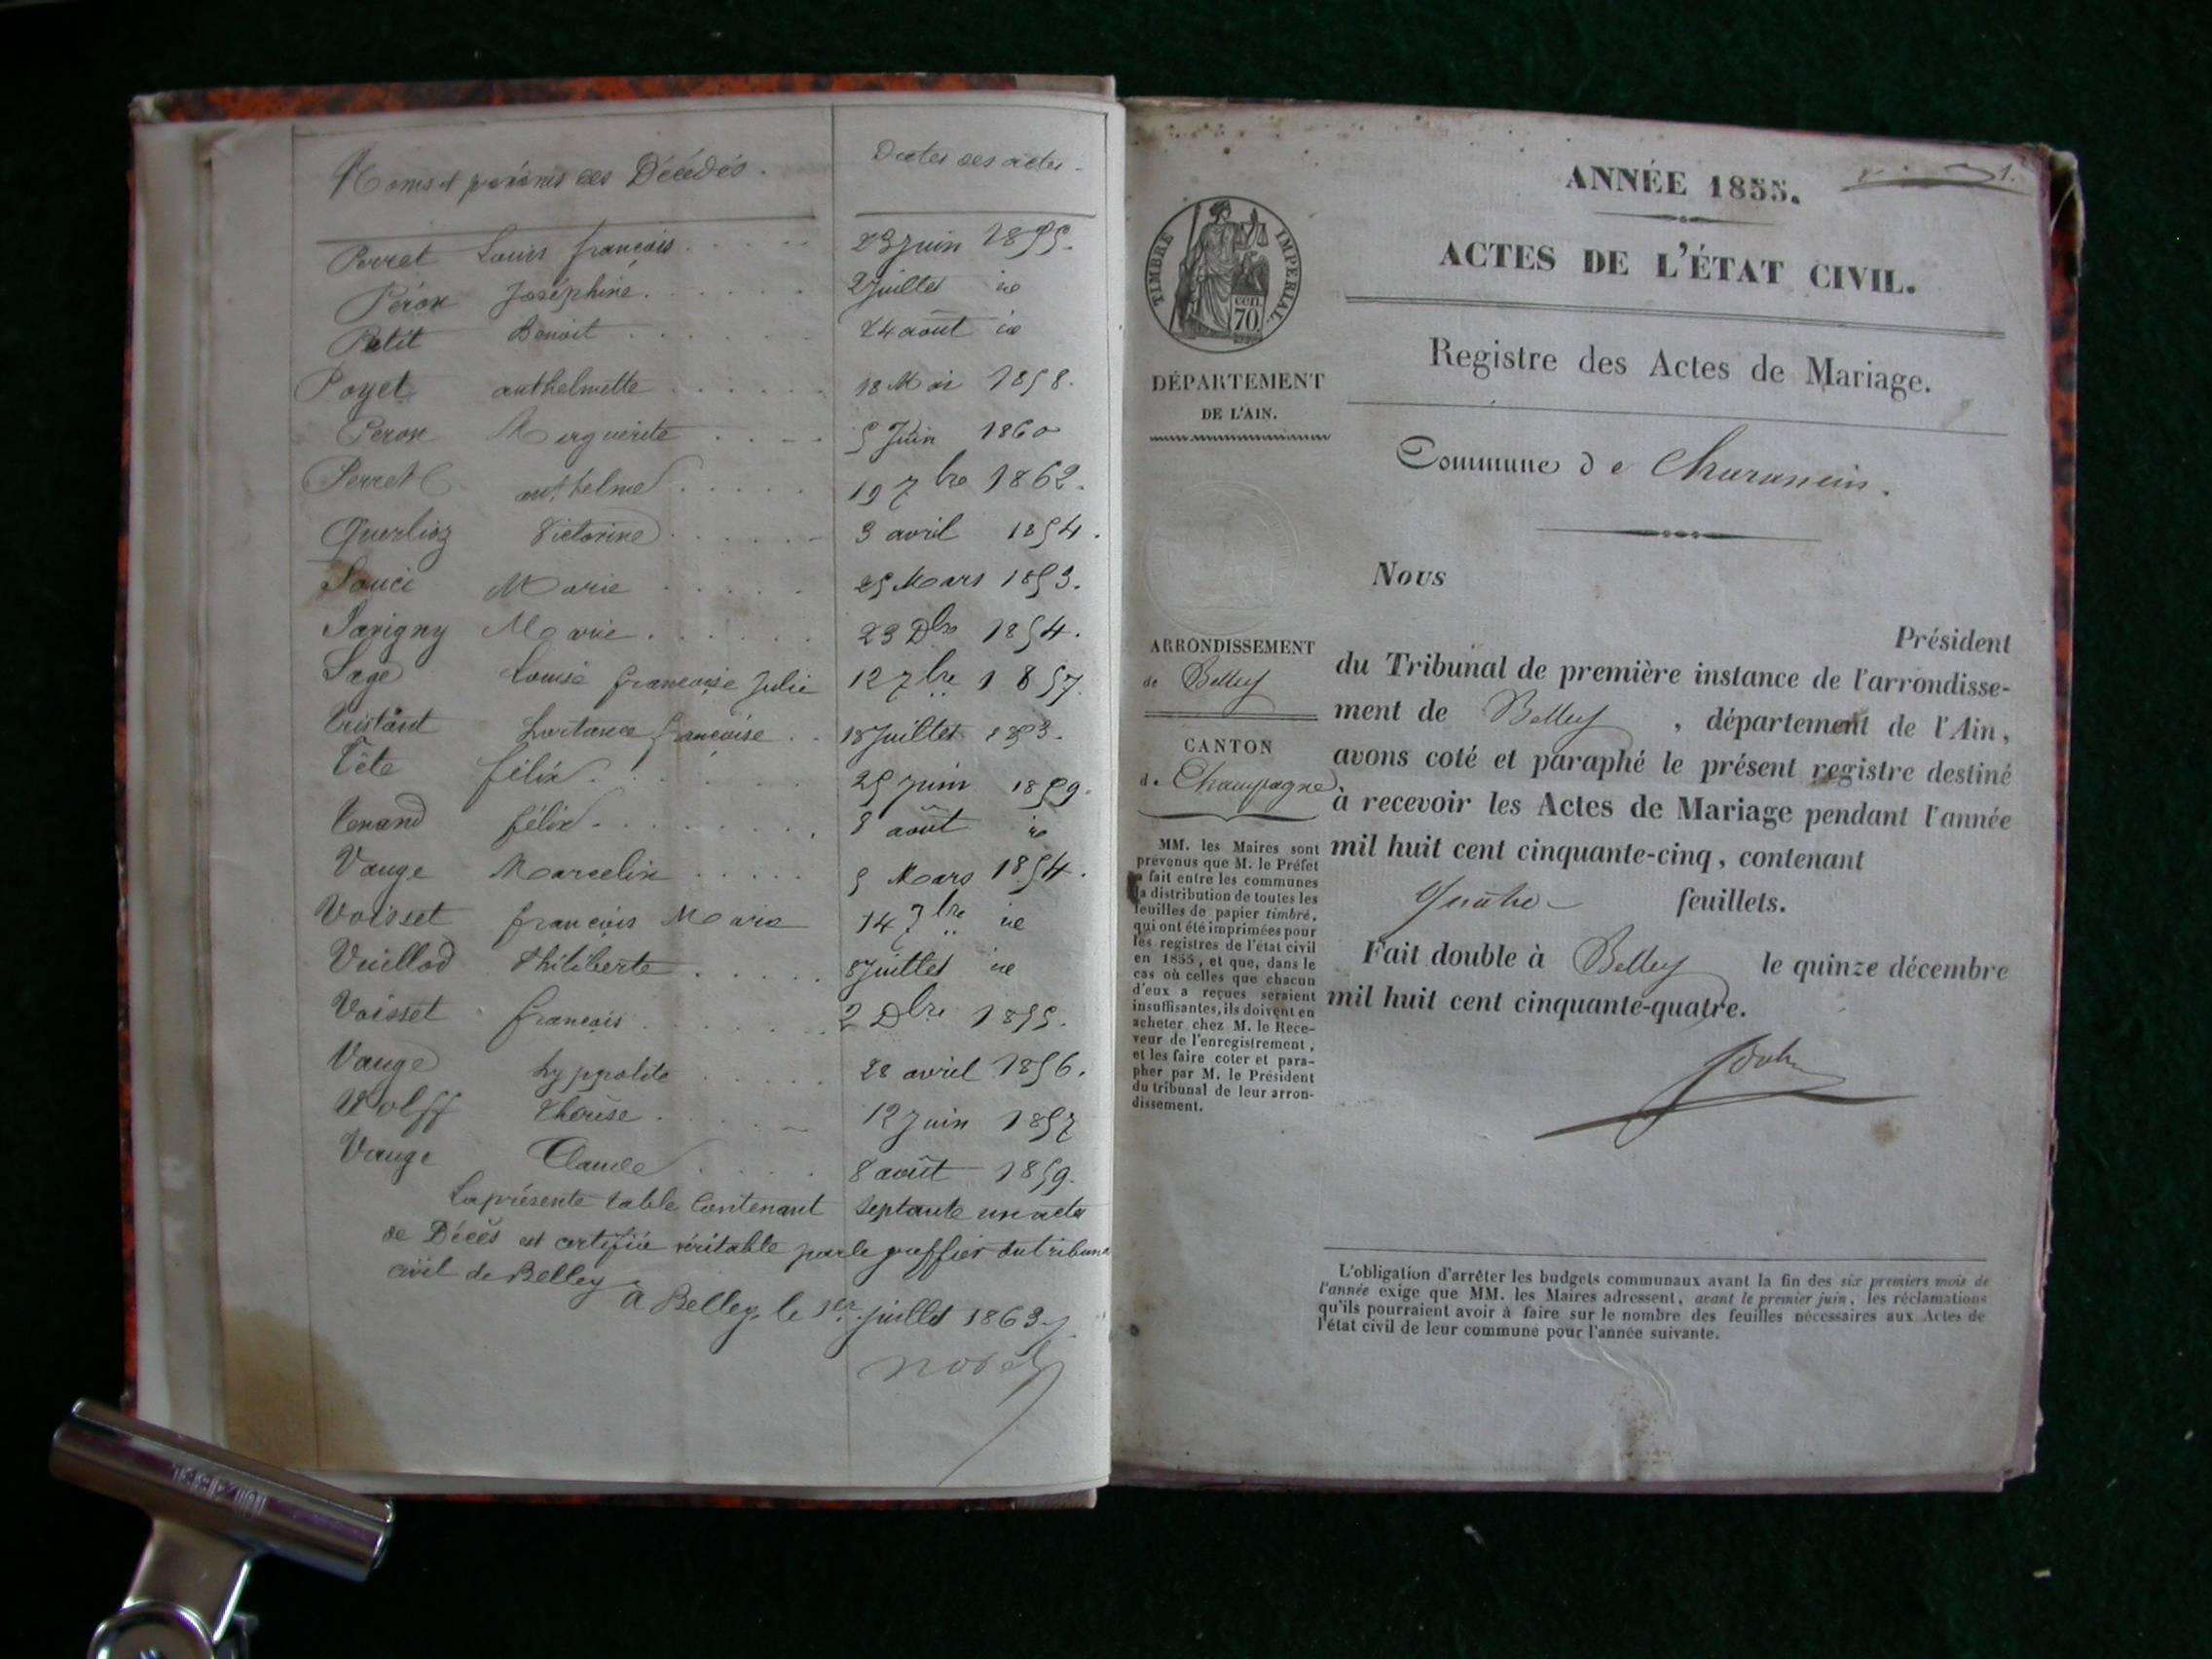 Noms et prénoms des Décédés. Dates des actes.
Perret Louis françois 23 Juin 1855.
Péron Joséphine. 2 Juillet id
Petit Benoit 24 août id
Poyet anthelmette 18 Mai 1858.
Peron Marguerite 5 Juin 1860
Perret anthelme 19 7bre 1862.
Querlioz Victorine 3 avril 1854.
Souci Marie 25 Mars 1853.
Savigny Marie 23 Dbre 1854.
Sage Louise françoise Julie 12 7bre 1857.
Tristant hortance françoise 18 Juillet 1853.
Tête félix 25 Juin 1859.
Tenand félix 8 août id
Vauge Marcelin 5 Mars 1854.
Voisset françois Marie 14 7bre id
Vuillod Philiberte 8 Juillet id
Voisset françois 2 Dbre 1855.
Vauge hyppolite 28 avril 1856.
Wolff Therèse 12 Juin 1857
Vauge Claude 8 août 1859.
La présente table Contenant septante un acte
de Décès est certifiée véritable par le greffier du tribunal
civil de Belley
A Belley, le 1er juillet 1863
ANNÉE 1855. 1.
ACTES DE L'ÉTAT CIVIL.
Registre des Actes de Mariage.
Commune de
TIMBRE IMPERIAL
cen.
70.
DÉPARTEMENT
DE L'AIN.
ARRONDISSEMENT
de Belley
CANTON
de Champagne
MM. les Maires sont
prévenus que M. le Préfet
a fait entre les communes
la distribution de toutes les
feuilles de papier timbré,
qui ont été imprimées pour
les registres de l'état civil
en 1855, et que, dans le
cas où celles que chacun
d'eux a reçues seraient
insuffisantes, ils doivent en
acheter chez M. le Rece-
veur de l'enregistrement,
et les faire coter et para-
pher par M. le Président
du tribunal de leur arron-
dissement.
Nous
Président
du Tribunal de première instance de l'arrondisse-
ment de Belley, département de l'Ain,
avons coté et paraphé le présent registre destiné
à recevoir les Actes de Mariage pendant l'année
mil huit cent cinquante-cinq, contenant
Quatre feuillets.
Fait double à Belley le quinze décembre
mil huit cent cinquante-quatre.
L'obligation d'arrêter les budgets communaux avant la fin des six premiers mois de
l'année exige que MM. les Maires adressent, avant le premier juin, les réclamations
qu'ils pourraient avoir à faire sur le nombre des feuilles nécessaires aux Actes de
l'état civil de leur commune pour l'année suivante.